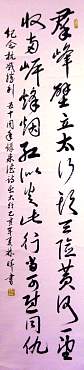 群峰壁立太行头天险黄河一望
收两岸烽烟红似火此行当可慰同仇
纪念抗战胜利五十周年录朱德诗